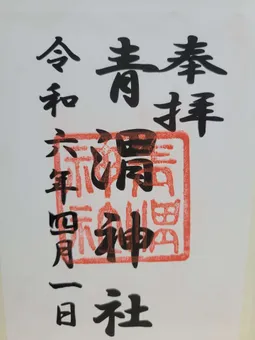 奉拝
青渭神社
令和六年四月一日
青渭神社